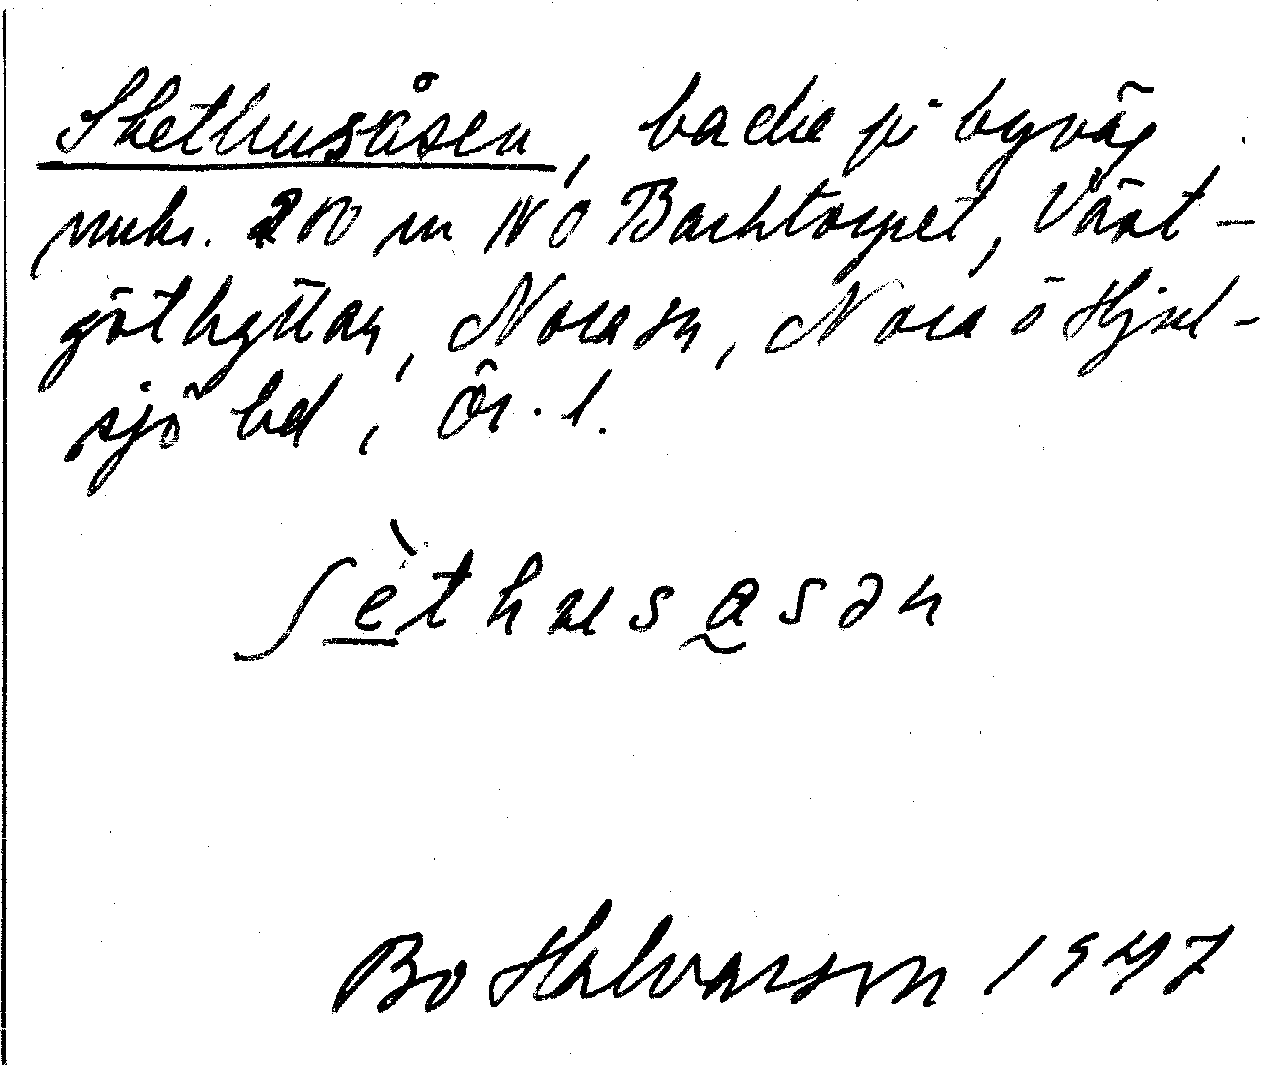 Skethusåsen, backe på byväg
omkr. 200 m NO Backtorpet, Väst-
götthyttan, Nora sn, Nora o Hjul-
sjö bd, Ör. l.
ʃèthusåsən
Bo Halvarson 1947